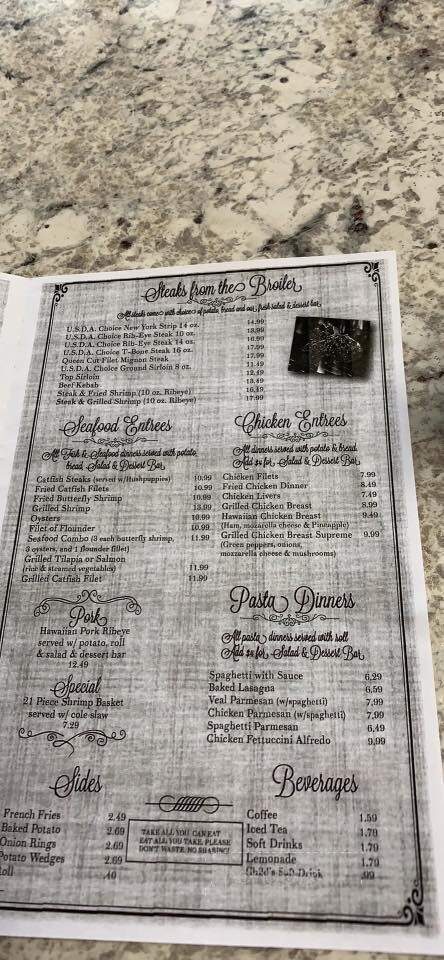 Steaks from the Broiler
All steaks come with choice of potato, bread and our fresh salad & dessert bar
U.S.D.A. Choice New York Strip 14 oz. 14.99
U.S.D.A. Choice Rib-Eye Steak 10 oz. 13.99
U.S.D.A. Choice Rib-Eye Steak 14 oz. 16.99
U.S.D.A. Choice T-Bone Steak 16 oz. 17.99
Queen Cut Filet Mignon Steak 17.99
U.S.D.A. Choice Ground Sirloin 8 oz. 11.49
Top Sirloin 12.49
Beef Kebab 13.49
Steak & Fried Shrimp (10 oz. Ribeye) 16.49
Steak & Grilled Shrimp (10 oz. Ribeye) 17.99
Seafood Entrees
All Fish & Seafood dinners served with potato,
bread, Salad & Dessert Bar
Catfish Steaks (served w/Hushpuppies) 10.99
Fried Catfish Filets 10.99
Fried Butterfly Shrimp 10.99
Grilled Shrimp 13.99
Oysters 10.99
Filet of Flounder 10.99
Seafood Combo (3 each butterfly shrimp, 11.99
3 oysters, and 1 flounder fillet)
Grilled Tilapia or Salmon
(rice & steamed vegetables) 11.99
Grilled Catfish Filet 11.99
Chicken Entrees
All dinners served with potato & bread
Add $4 for Salad & Dessert Bar
Chicken Filets 7.99
Fried Chicken Dinner 8.49
Chicken Livers 7.49
Grilled Chicken Breast 8.99
Hawaiian Chicken Breast 9.49
(Ham, mozarella cheese & Pinnapple)
Grilled Chicken Breast Supreme 9.99
(Green peppers, onions,
mozzarella cheese & mushrooms)
Pork
Hawaiian Pork Ribeye
served w/potato, roll
& salad & dessert bar
12.49
Special
21 Piece Shrimp Basket
served w/ cole slaw
7.29
Pasta Dinners
All pasta dinners served with roll
Add $4 for Salad & Dessert Bar
Spaghetti with Sauce 6.29
Baked Lasagna 6.59
Veal Parmesan (w/spaghetti) 7.99
Chicken Parmesan (w/spaghetti) 7.99
Spaghetti Parmesan 6.49
Chicken Fettuccini Alfredo 9.99
Sides
French Fries 2.49
Baked Potato 2.69
Onion Rings 2.69
Potato Wedges 2.69
Roll .40
TAKE ALL YOU CAN EAT
EAT ALL YOU TAKE, PLEASE
DON'T WASTE. NO SHARING!
Beverages
Coffee 1.59
Iced Tea 1.79
Soft Drinks 1.79
Lemonade 1.79
Child's Soft Drink .99